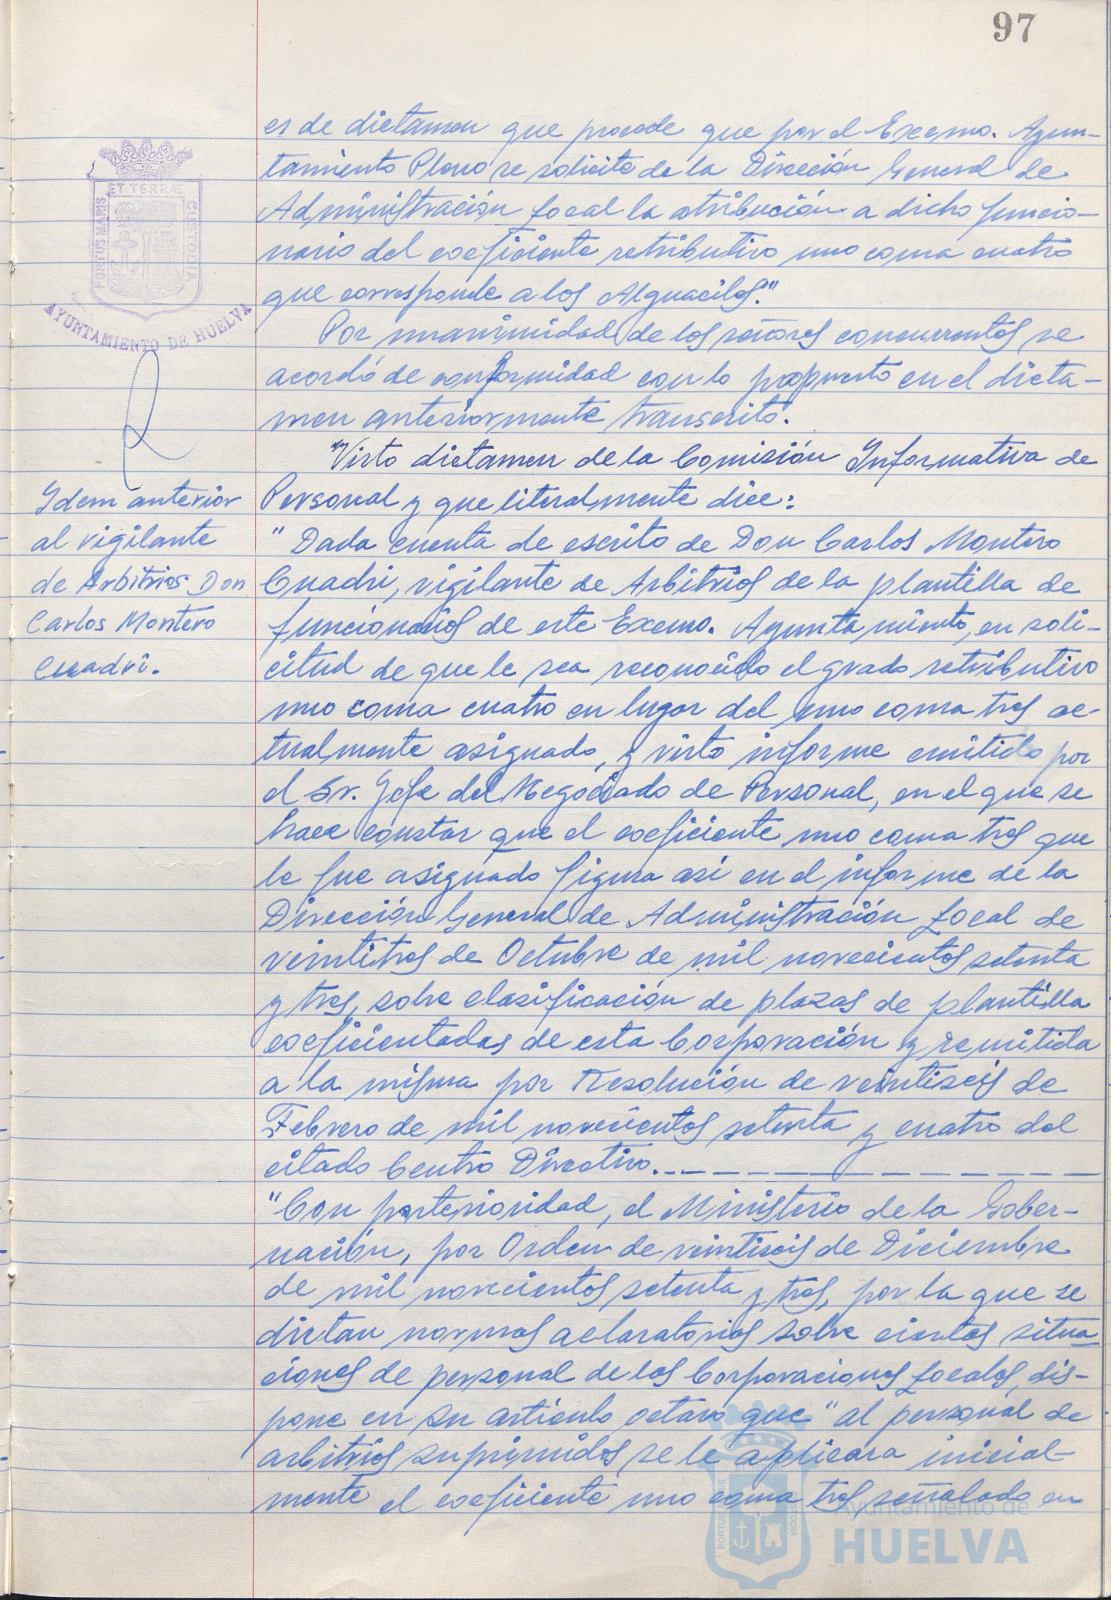 97
es de dictamen que procede que por el Excmo. Ayun-
tamiento Pleno se solicite de la Dirección General de
Administración Local la atribución a dicho funcio-
nario del coeficiente retributivo uno coma cuatro
que corresponde a los Alguaciles."
Por unanimidad de los señores concurrentes se
acordó de conformidad con lo propuesto en el dicta-
men anteriormente transcrito.
Visto dictamen de la Comisión Informativa de
Personal y que literalmente dice:
"Dada cuenta de escrito de Don Carlos Montero
Cuadri, vigilante de Arbitrios de la plantilla de
funcionarios de este Excmo. Ayuntamiento, en soli-
citud de que le sea reconocido el grado retributivo
uno coma cuatro en lugar del uno coma tres ac-
tualmente asignado, y visto informe emitido por
el Sr. Jefe del Negociado de Personal, en el que se
hace constar que el coeficiente uno coma tres que
le fue asignado figura así en el informe de la
Dirección General de Administración Local de
veintitres de Octubre de mil novecientos setenta
y tres, sobre clasificación de plazas de plantilla
coeficientadas de esta Corporación y remitida
a la misma por Resolución de veintiseis de
Febrero de mil novecientos setenta y cuatro del
citado Centro Directivo.
"Con posterioridad, el Ministerio de la Gober-
nación, por Orden de veintiseis de Diciembre
de mil novecientos setenta y tres, por la que se
dictan normas aclaratorias sobre ciertas situa
ciones de personal de las Corporaciones Locales, dis-
pone en su artículo octavo que "al personal de
arbitrios suprimidos se le aplicara inicial-
mente el coeficiente uno coma tres señalado en
ET TERRÆ
PORTUS MARIS
CUSTODIA
AYUNTAMIENTO DE HUELVA
Idem anterior
al vigilante
de Arbitrios Don
Carlos Montero
Cuadri.
Ayuntamiento de
HUELVA